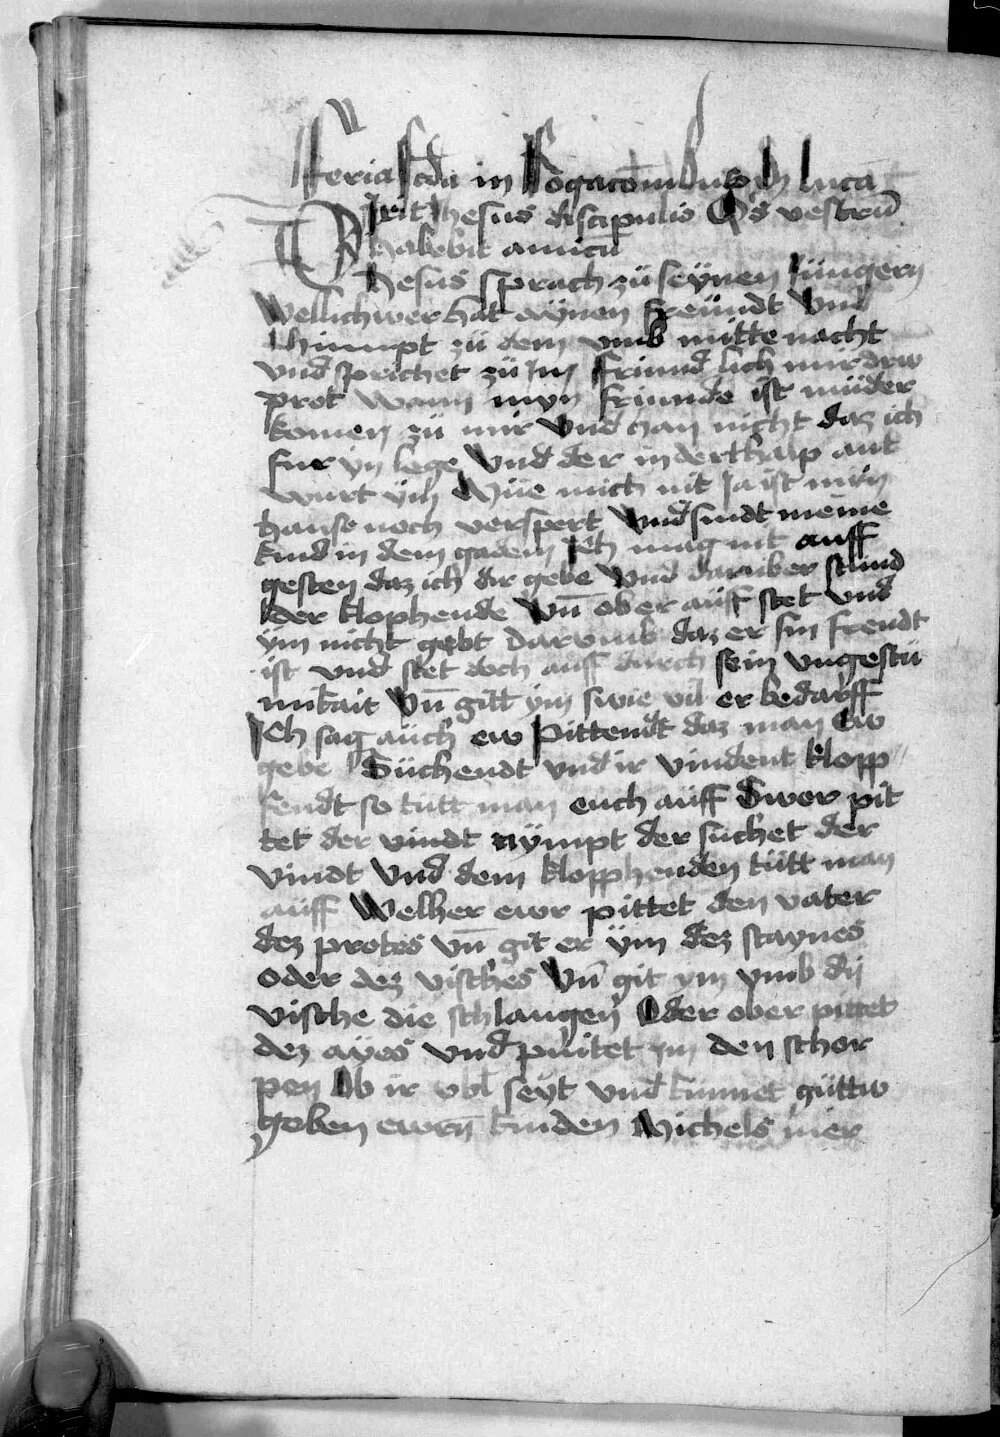 Feria scda in Rogacōnibus Lucā
Dixit Jhesus discipulis Q's vestrū
habebit amicū
Jhesus sprach zü seynen Jüngern
Wellich wer hat aynen freündt Vnd
chumpt zü dem vmb mitte nacht
vnd sprichet zü Im friund lich mir drw
prot wann myn friunde ist müder
komen zü mir Vnd han nicht daz ich
fur yn lege Vnd der inderthalp ant
wurt ym Müe mich nit Ja ist mein
hause noch verspert Vnd sindt meine
kind in dem gadem Ich mag nit auff
gesten daz ich dir gebe Vnd daruber stund
der klophende Vn̄ ob er auff stet Vnd
ym nicht gebt darvmb daz er sin freudt
ist vnd stet doch auff durch sein vngestü
mikait Vn̄ gitt ym swie vil er bedarff
Ich sag aüch ew Pittendt daz man Ew
gebe Süchendt vnd ir vindent klopp
fendt so tütt man euch aüff Swer pit
tet der vindt nÿmpt der suchet der
vindt Vnd dem klopphenden tütt man
aüff Welher ewr pittet den vater
dez protes vn̄ git er ÿm dez staynes
oder dez visches Vn̄ git ym vmb dy
vische die schlangen Oder ob er pittet
dez ayes vnd puitet im den schor
pen Ob ir vbl seyt vnd kunnet güttw
geben ewrn̄ kinden Michels mer